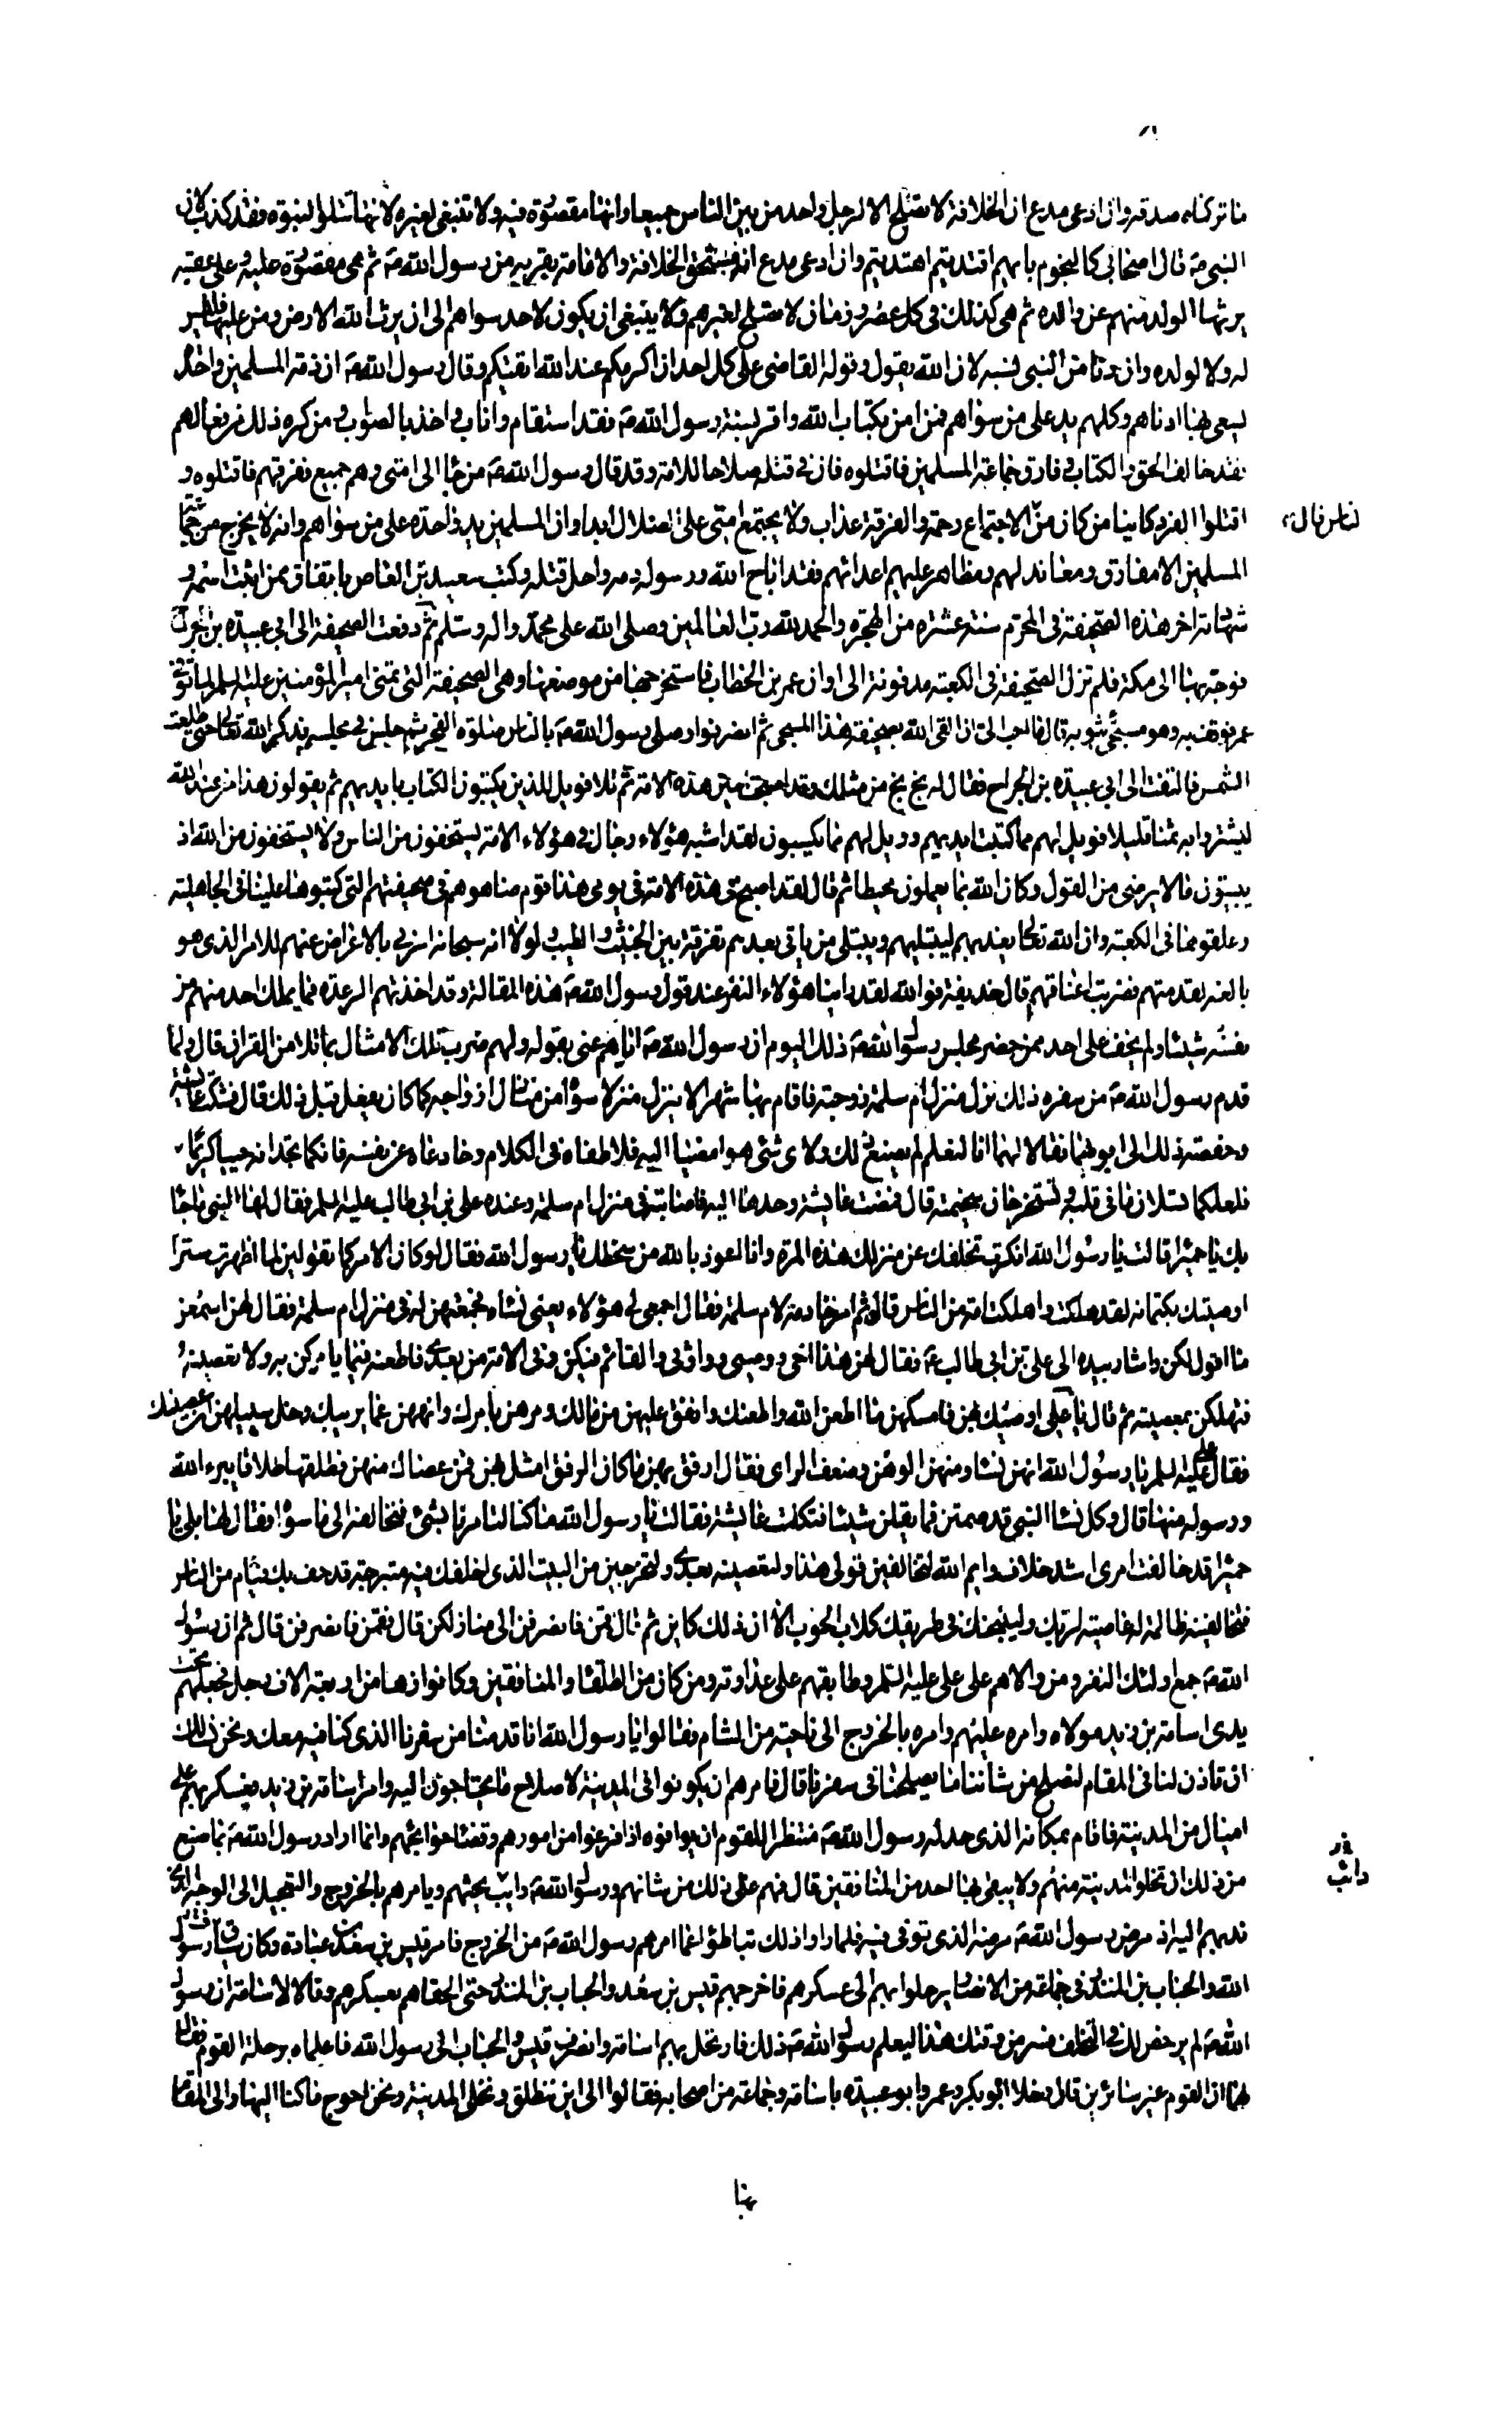 ما تركناه صدقة وان ادعى مدع ان الخلافة لا تصلح الا لرجل واحد من بين الناس جميعا وانها مقصورة فيه ولا تنبغى لغيره لانها تتلو النبوة فقد كذب لان
النبى ص قال اصحابى كالنجوم بايهم اقتديتم اهتديتم وان ادعى مدع انه مستحق الخلافة والامامة بقربه من رسول الله ص ثم هى مقصورة عليه وعلى عقبه
يرثها الولد منهم عن والده ثم هى كذلك فى كل عصر وزمان لا تصلح لغيرهم ولا ينبغى ان يكون لاحد سواهم الى ان يرث الله الارض ومن عليها فليس
له ولا لولده وان دنا من النبى نسبه لان الله يقول وقوله القاضى على كل احد ان اكرمكم عند الله اتقيكم وقال رسول الله ص ان ذمة المسلمين واحدة
يسعى بها ادناهم وكلهم يد على من سواهم فمن امن بكتاب الله واقر بسنة رسول الله ص فقد استقام واناب واخذ بالصواب ومن كره ذلك من فعالهم
فقد خالف الحق والكتاب وفارق جماعة المسلمين فاقتلوه فان فى قتله صلاحا للامة وقد قال رسول الله ص من جاء الى امتى وهم جميع ففرقهم فاقتلوه و
اقتلوا الفرد كاينا من كان من الناس فان الاجتماع رحمة والفرقة عذاب ولا يجتمع امتى على الضلال ابدا وان المسلمين يد واحدة على من سواهم وانه لا يخرج من جماعة
المسلمين الا مفارق ومعاند لهم ومظاهر عليهم اعدائهم فقد اباح الله ورسوله دمه واحل قتله وكتب سعيد بن العاص باتفاق ممن اثبت اسمه و
شهادته اخر هذه الصحيفة فى المحرم سنة عشرة من الهجرة والحمد لله رب العالمين وصلى الله على محمد واله وسلم ثم دفعت الصحيفة الى ابى عبيدة بن الجراح
فوجه بها الى مكة فلم تزل الصحيفة فى الكعبة مدفونة الى اوان عمر بن الخطاب فاستخرجها من موضعها وهى الصحيفة التى تمنى امير المؤمنين عليه السلم لما توفى
عمر فوقف به وهو مسجى بثوبه قال ما احب الى ان القى الله بصحيفة هذا المسجى ثم انصرفوا وصلى رسول الله ص بالناس صلوة الفجر ثم جلس فى مجلسه يذكر الله تعالى حتى طلعت
الشمس فالتفت الى ابى عبيدة بن الجراح فقال له بخ بخ من مثلك وقد اصبحت امين هذه الامة ثم تلا فويل للذين يكتبون الكتاب بايديهم ثم يقولون هذا من عند الله
ليشتروا به ثمنا قليلا فويل لهم مما كتبت ايديهم وويل لهم مما يكسبون لقد اشبه هؤلاء رجال فى هؤلاء الامة يستخفون من الناس ولا يستخفون من الله اذ
يبيتون ما لا يرضى من القول وكان الله بما يعملون محيطا ثم قال لقد اصبح فى هذه الامة فى يومى هذا قوم ضاهوهم فى صحيفتهم التى كتبوها علينا فى الجاهلية
وعلقوها فى الكعبة وان الله تعالى يعذبهم ليبتليهم ويبتلى من ياتى بعدهم تفرقة بين الخبيث والطيب ولولا انه سبحانه امرنى بالاعراض عنهم للامر الذى هو
بالغه لقدمتهم فضربت اعناقهم قال حذيفة فوالله لقد راينا هؤلاء النفر عند قول رسول الله ص هذه المقالة وقد اخذتهم الرعدة فما يملك احد منهم من
نفسه شيئا ولم يخف على احد ممن حضر مجلس رسول الله ص ذلك اليوم ان رسول الله ص اياهم عنى بقوله ولهم ضرب تلك الامثال بما تلا من القران قال ولما
قدم رسول الله ص من سفره ذلك نزل منزل ام سلمة زوجته فاقام بها شهرا لا ينزل منزلا سواه من منازل ازواجه كما كان يفعل قبل ذلك قال فشكت عايشة
وحفصة ذلك الى ابويهما فقالا لهما انا لنعلم لم صنع ذلك ولاى شئ هو امضيا اليه فلاطفاه فى الكلام وخادعاه عن نفسه فانكما تجدانه حييا كريما
فلعلكما تسلان ما فى قلبه وتستخرجان سخيمته قال فمضت عايشة وحدها اليه فاصابته فى منزل ام سلمة وعنده على بن ابى طالب عليه السلم فقال لها النبى ما جاء
بك يا حميرا قالت يا رسول الله انكرت تخلفك عن منزلك هذه المرة وانا اعوذ بالله من سخطك يا رسول الله فقال لو كان الامر كما تقولين لما اظهرت سرا
اوصيتك بكتمانه لقد هلكت واهلكت امة من الناس قال ثم امر خادمة لام سلمة فقال اجمعى لى هؤلاء يعنى نساءه فجمعتهن له فى منزل ام سلمة فقال لهن اسمعن
ما اقول لكن واشار بيده الى على بن ابى طالب ع فقال لهن هذا اخى ووصيى ووارثى والقائم فيكن وفى الامة من بعدى فاطعنه فيما يامركن به ولا تعصينه
فتهلكن بمعصيته ثم قال يا على اوصيك بهن فامسكهن ما اطعن الله واطعنك وانفق عليهن من مالك ومرهن بامرك وانههن عما يريبك وخل سبيلهن ان عصينك
فقال على عليه السلم يا رسول الله انهن نساء ومنهن الوهن وضعف الراى فقال ارفق بهن ما كان الرفق امثل بهن فمن عصاك منهن فطلقها طلاقا يبرء الله
ورسوله منها قال وكل نساء النبى قد صمتن فما يقلن شيئا فتكلمت عايشة فقالت يا رسول الله ما كنا لتامرنا بشئ فنخالفه الى ما سواه فقال لها بلى يا
حميرا قد خالفت امرى اشد خلاف وايم الله لتخالفين قولى هذا ولتعصينه بعدى ولتخرجين من البيت الذى اخلفك فيه متبرجة قد حف بك فئام من الناس
فتخالفينه ظالمة له عاصية لربك ولتنبحنك فى طريقك كلاب الحوب الا ان ذلك كاين ثم قال قمن فانصرفن الى منازلكن قال فقمن فانصرفن قال ثم ان رسول
الله ص جمع اولئك النفر ومن والاهم على على عليه السلم وطابقهم على عداوته ومن كان من الطلقاء والمنافقين وكانوا زهاء من اربعة الاف رجل فجعلهم تحت
يدى اسامة بن زيد مولاه وامره عليهم وامره بالخروج الى ناحية من الشام فقالوا يا رسول الله انا قدمنا من سفرنا الذى كنا فيه معك ونحن نسالك
ان تاذن لنا فى المقام لنصلح من شاننا ما يصلحنا فى سفرنا قال فامرهم ان يكونوا فى المدينة لاصلاح ما يحتاجون اليه وامر اسامة بن زيد فعسكر بهم على
اميال من المدينة فاقام بمكانه الذى حد له رسول الله ص منتظرا للقوم ان يوافوه اذا فرغوا من امورهم وقضاء حوائجهم وانما اراد رسول الله ص بما صنع
من ذلك ان تخلو المدينة منهم ولا يبقى بها احد من المنافقين قال فهم على ذلك من شانهم ورسول الله ص دايب يحثهم ويامرهم بالخروج والتعجيل الى الوجه الذى
ندبهم اليه اذ مرض رسول الله ص مرضه الذى توفى فيه فلما راوا ذلك تباطؤا عما امرهم رسول الله ص من الخروج فامر قيس بن سعد بن عبادة وكان سياف رسول
الله والحباب بن المنذر فى جماعة من الانصار يرحلوا بهم الى عسكرهم فاخرجهم قيس بن سعد والحباب بن المنذر حتى الحقاهم بعسكرهم وقالا لاسامة ان رسول
الله ص لم يرخص لك فى التخلف فسر من وقتك هذا ليعلم رسول الله ص ذلك فارتحل بهم اسامة وانصرف قيس والحباب الى رسول الله فاعلماه برحلة القوم فقال
لهما ان القوم غير سائرين قال وخلا ابو بكر وعمر وابو عبيدة باسامة وجماعة من اصحابه فقالوا الى اين ننطلق ونخلى المدينة ونحن احوج ما كنا اليها والى المقام
بها